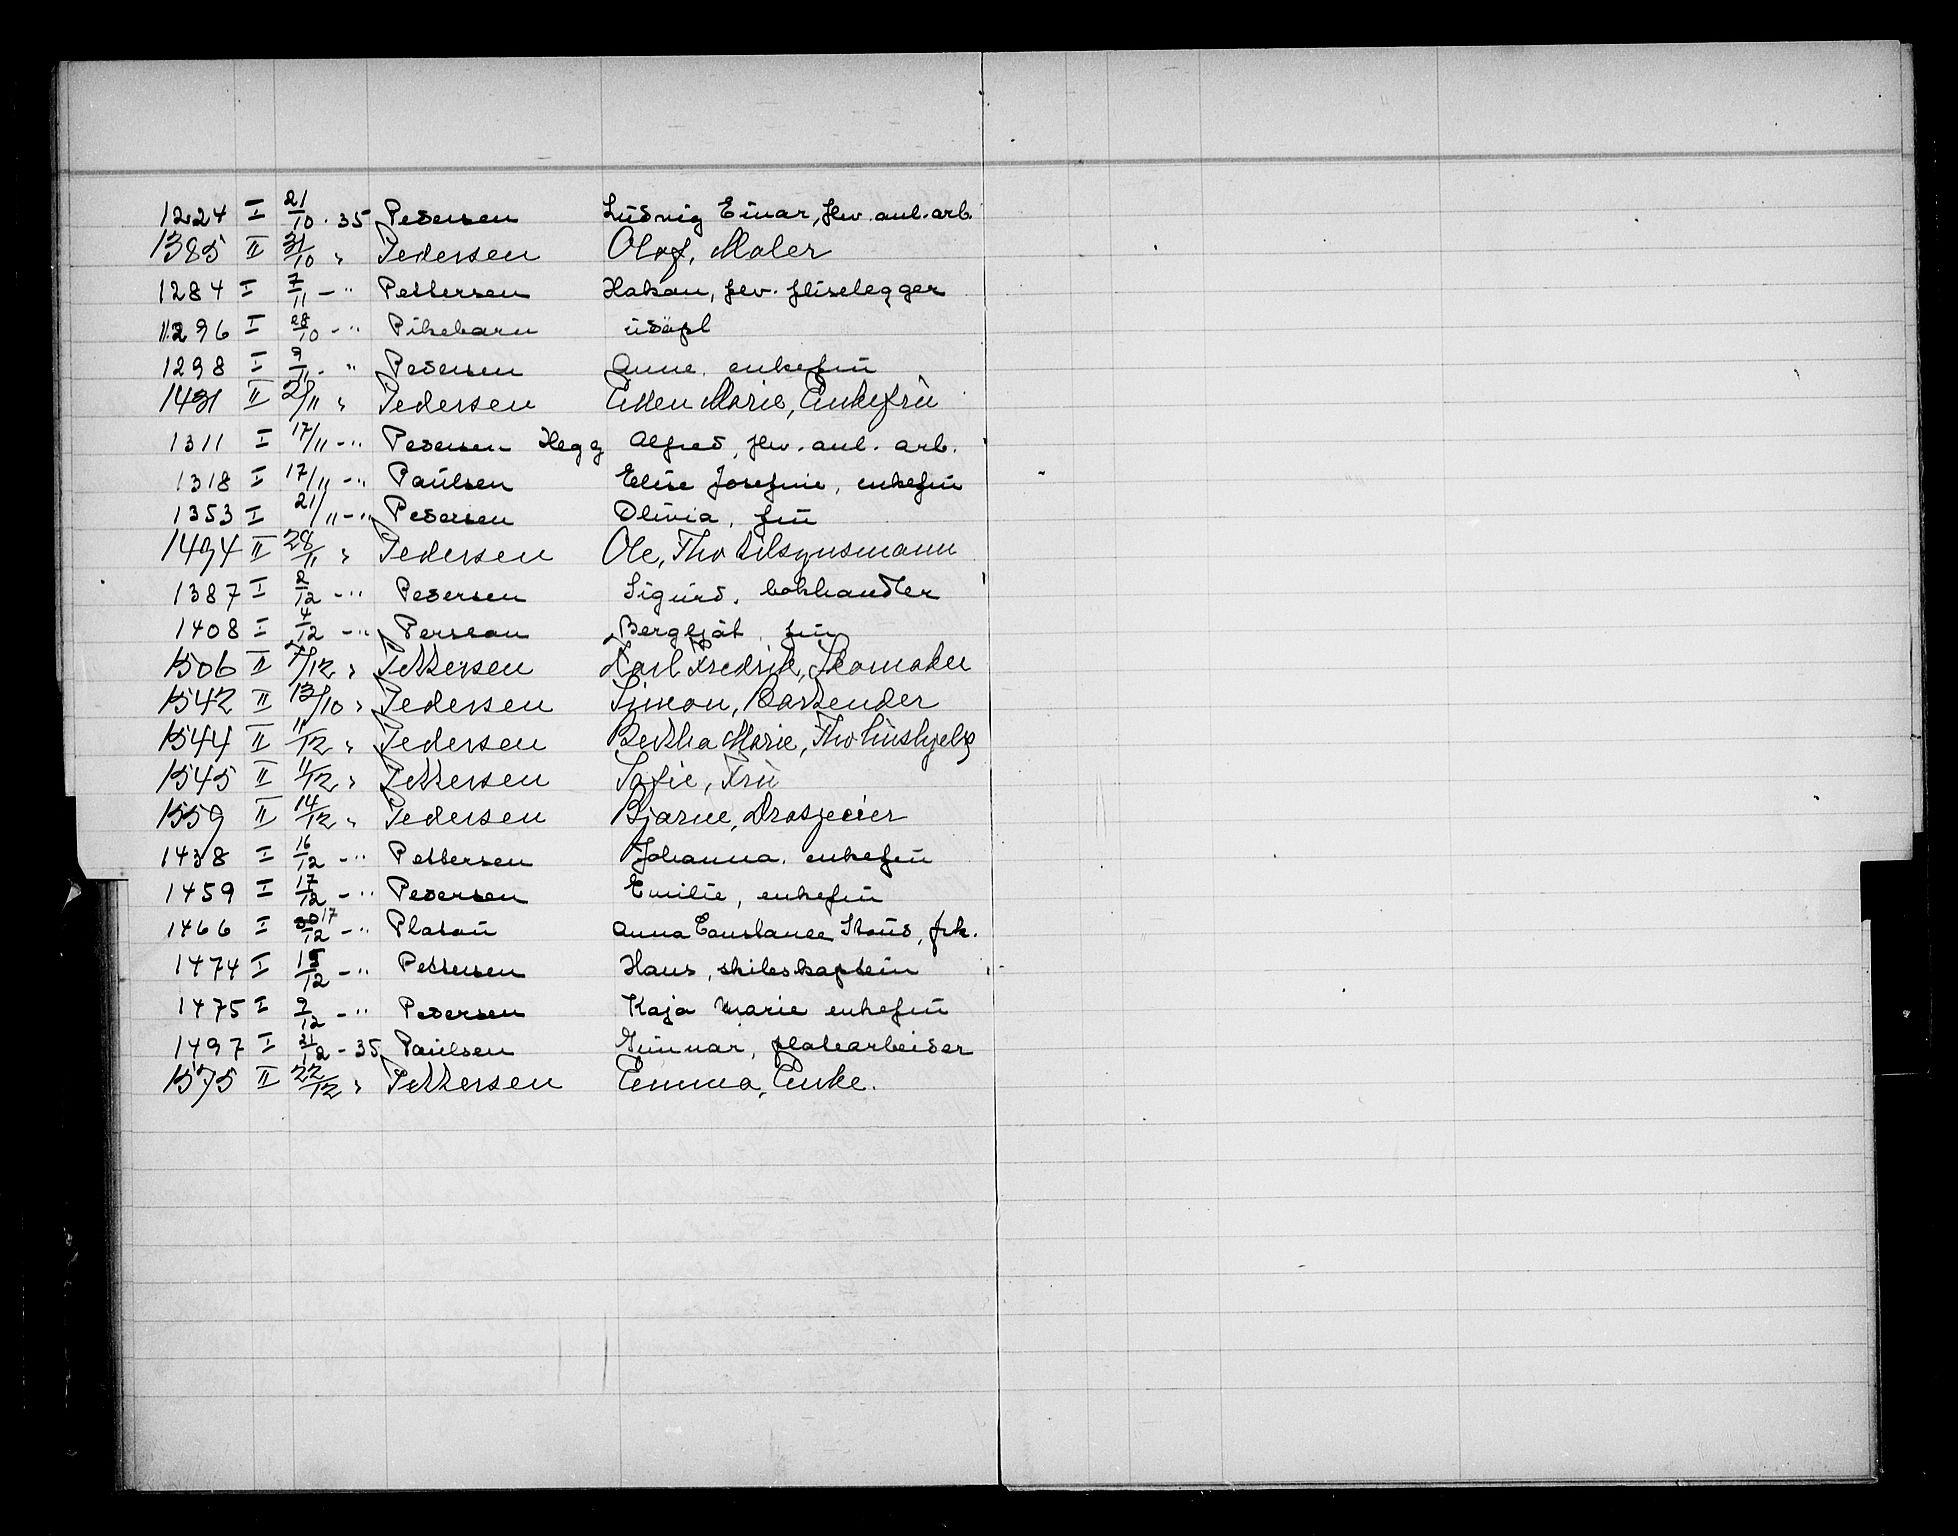 1224 I 21/10 . 35 Pedersen Ludvig Einar, fhv. anl. arb.
1385 II 31/10 " Pedersen Olaf, Maler
1284 I 7/11 - " Pettersen Hakon, fev. fliselegger
11296 I 28/10 - " Pikebarn udøpt
1298 I 9/11 - " Pedersen Anne, enkefru
1431 II 2/11 " Pedersen Ellen Marie, Enkefru
1311 I 17/11 - " Pedersen Hegg Alfred, fhv. anl. arb.
1318 I 17/11 - " Paulsen Elise Josefine, enkefru
1353 I 21/11 - " Pedersen Olivia, fru
1494 II 28/11 " Pedersen Ole, Fhv tilsynsmann
1387 I 2/12 - " Pedersen Sigurd, bokhandler
1408 I 4/12 - " Persson Bergljot, fru
1506 II /12 " Pettersen Karl Fredrik, Skomaker
1542 II 13/10 " Pedersen Simon, Bartender
1544 II 11/12 " Pedersen Bertha Marie, Fhv hushjelp
1545 II 11/12 " Pettersen Sofie, Fru
1559 II 14/12 " Pedersen Bjarne, Drosjeeier
1438 I 16/12 - " Pettersen Johanna, enkefru
1459 I 17/12 - " Pedersen Emilie, enkefru
1466 I 17/12 - " Platou Anna Constance Stoud, frk.
1474 I 15/12 - " Pettersen Hans, skibskaptein
1475 I 9/12 - " Pedersen Kaja Marie enkefru
1497 I 21/12 - 35 Paulsen Gunnar, platearbeider
1575 II 22/12 " Pettersen Emma, Enke.